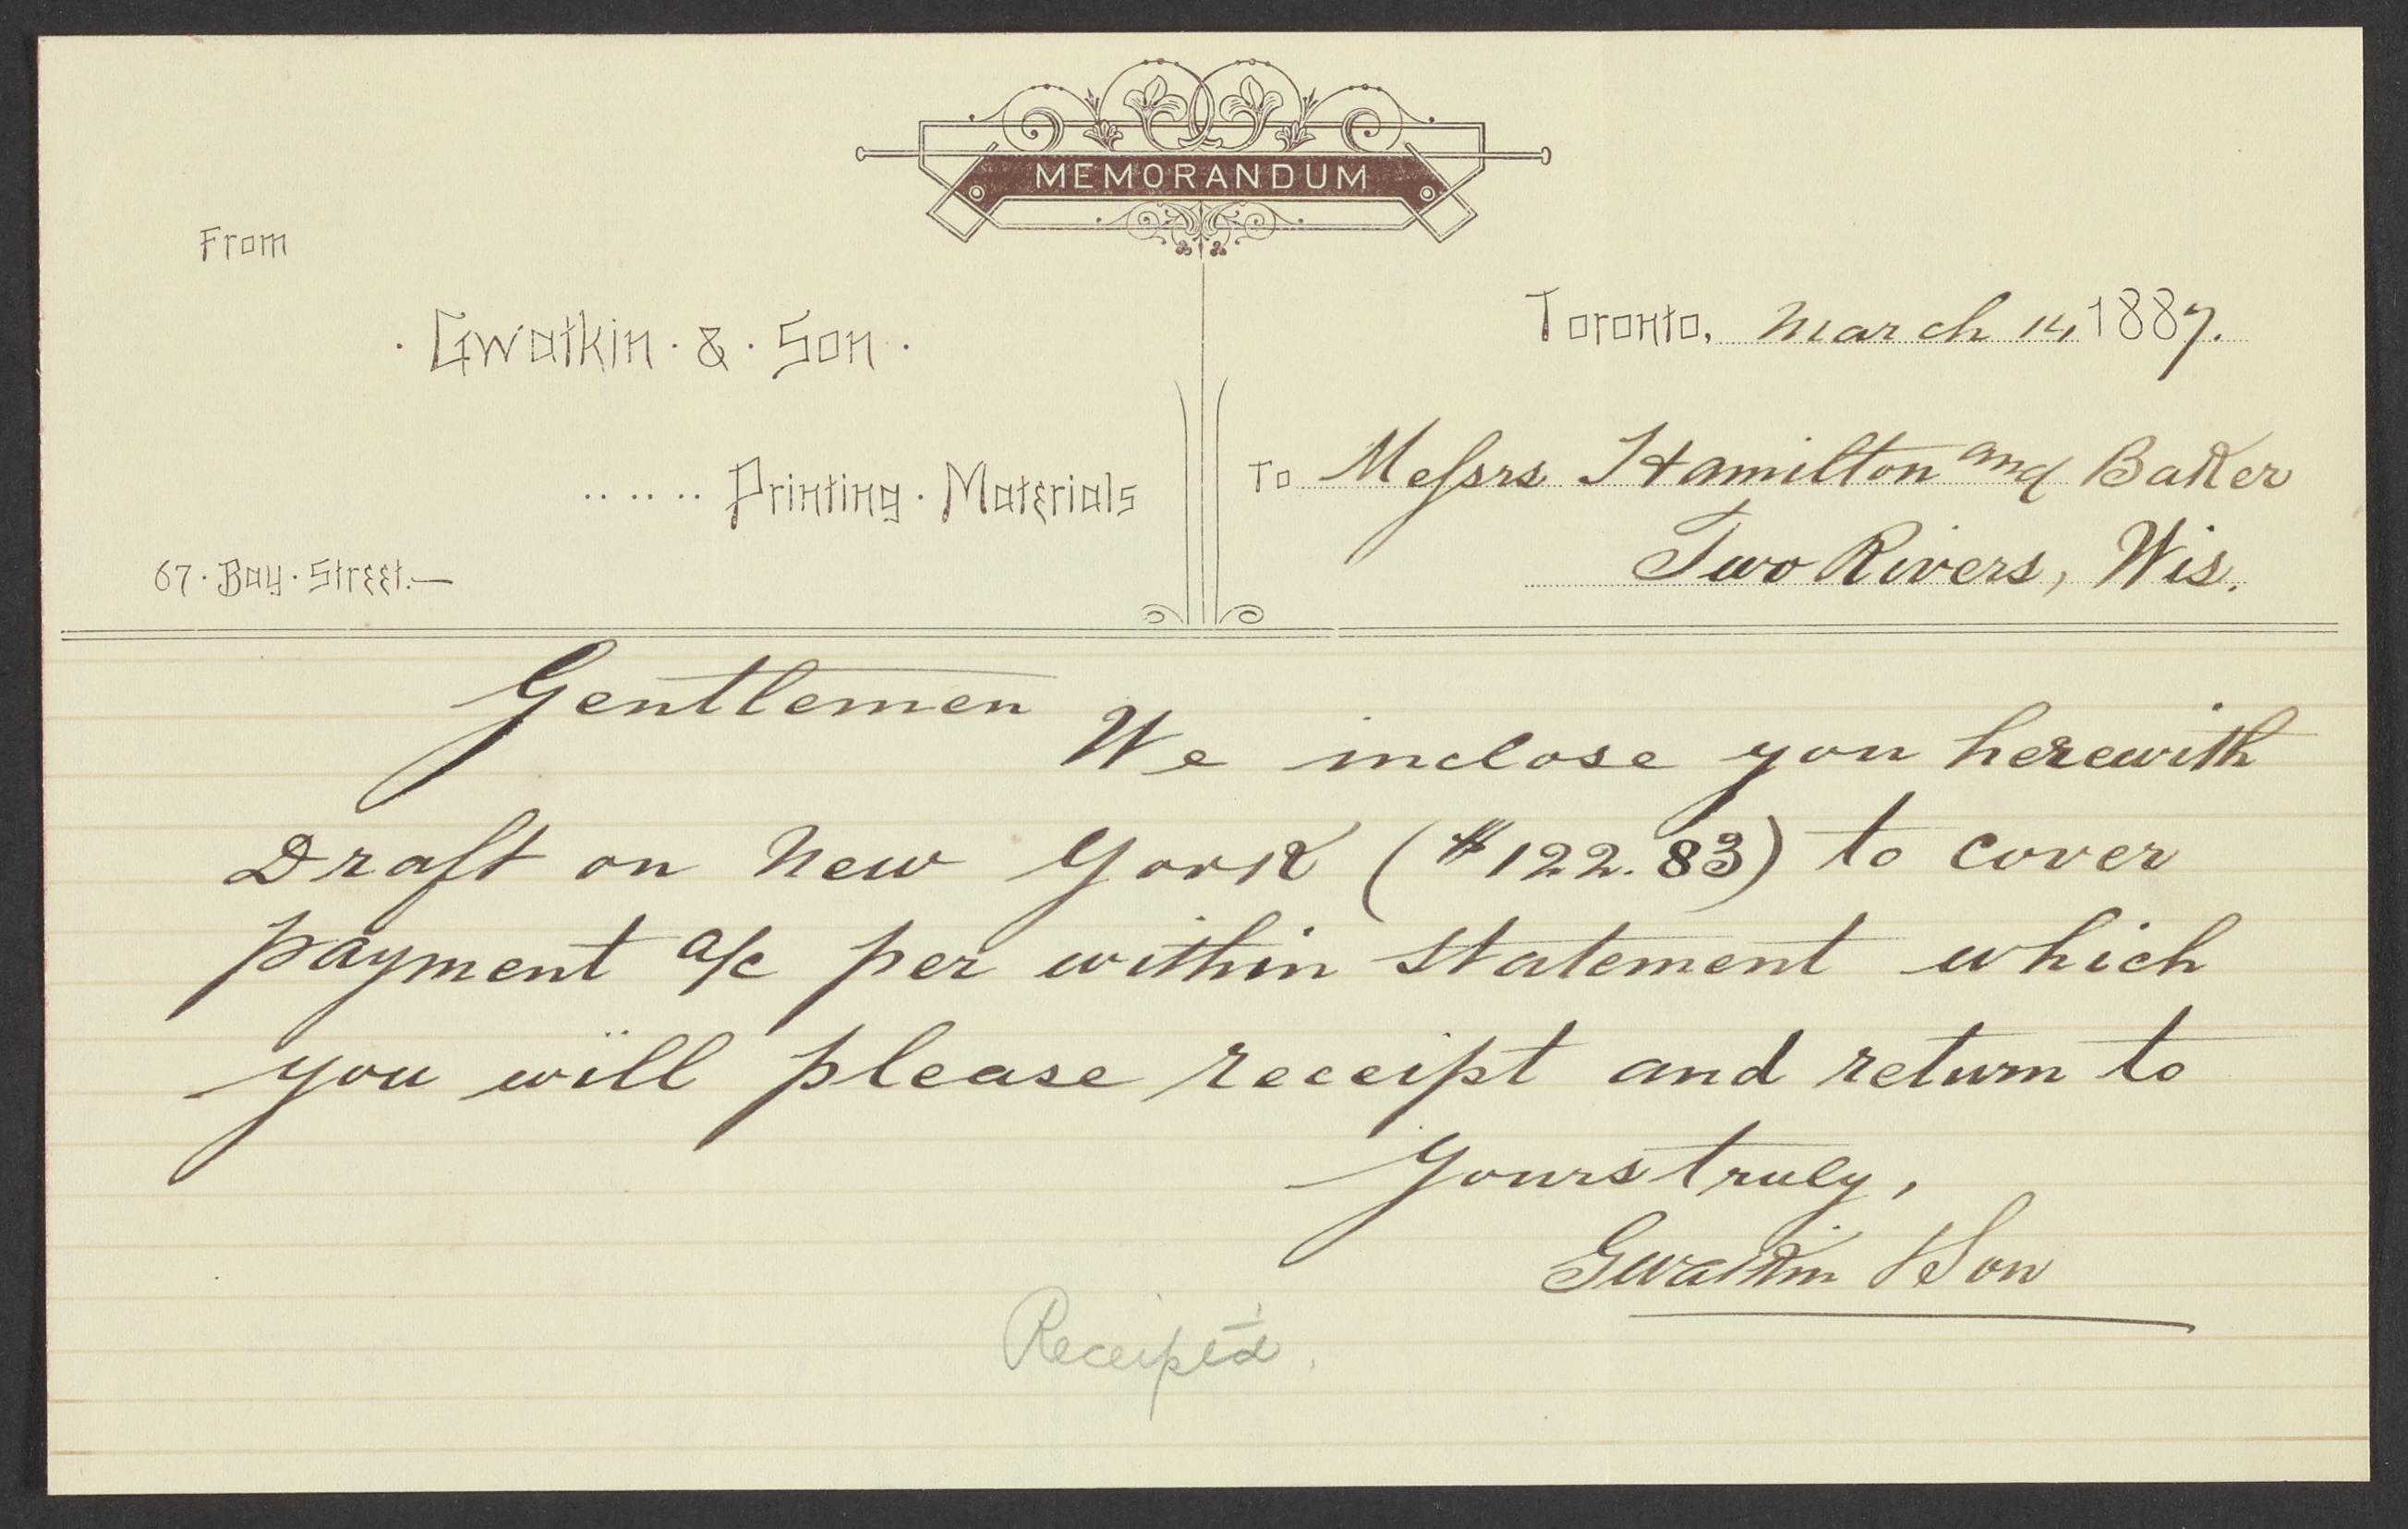 MEMORANDUM
From
· Gwatkin · & · Son ·
Toronto, March 14, 1887.
...... Printing · Materials
To Messrs Hamilton and Baker
67 · Bay · Street.—
Two Rivers, Wis.
Gentlemen
We inclose you herewith
Draft on New York ($122.83) to cover
payment a/c per within statement which
you will please receipt and return to
Yours truly,
Gwatkin & Son
Receipt'd.